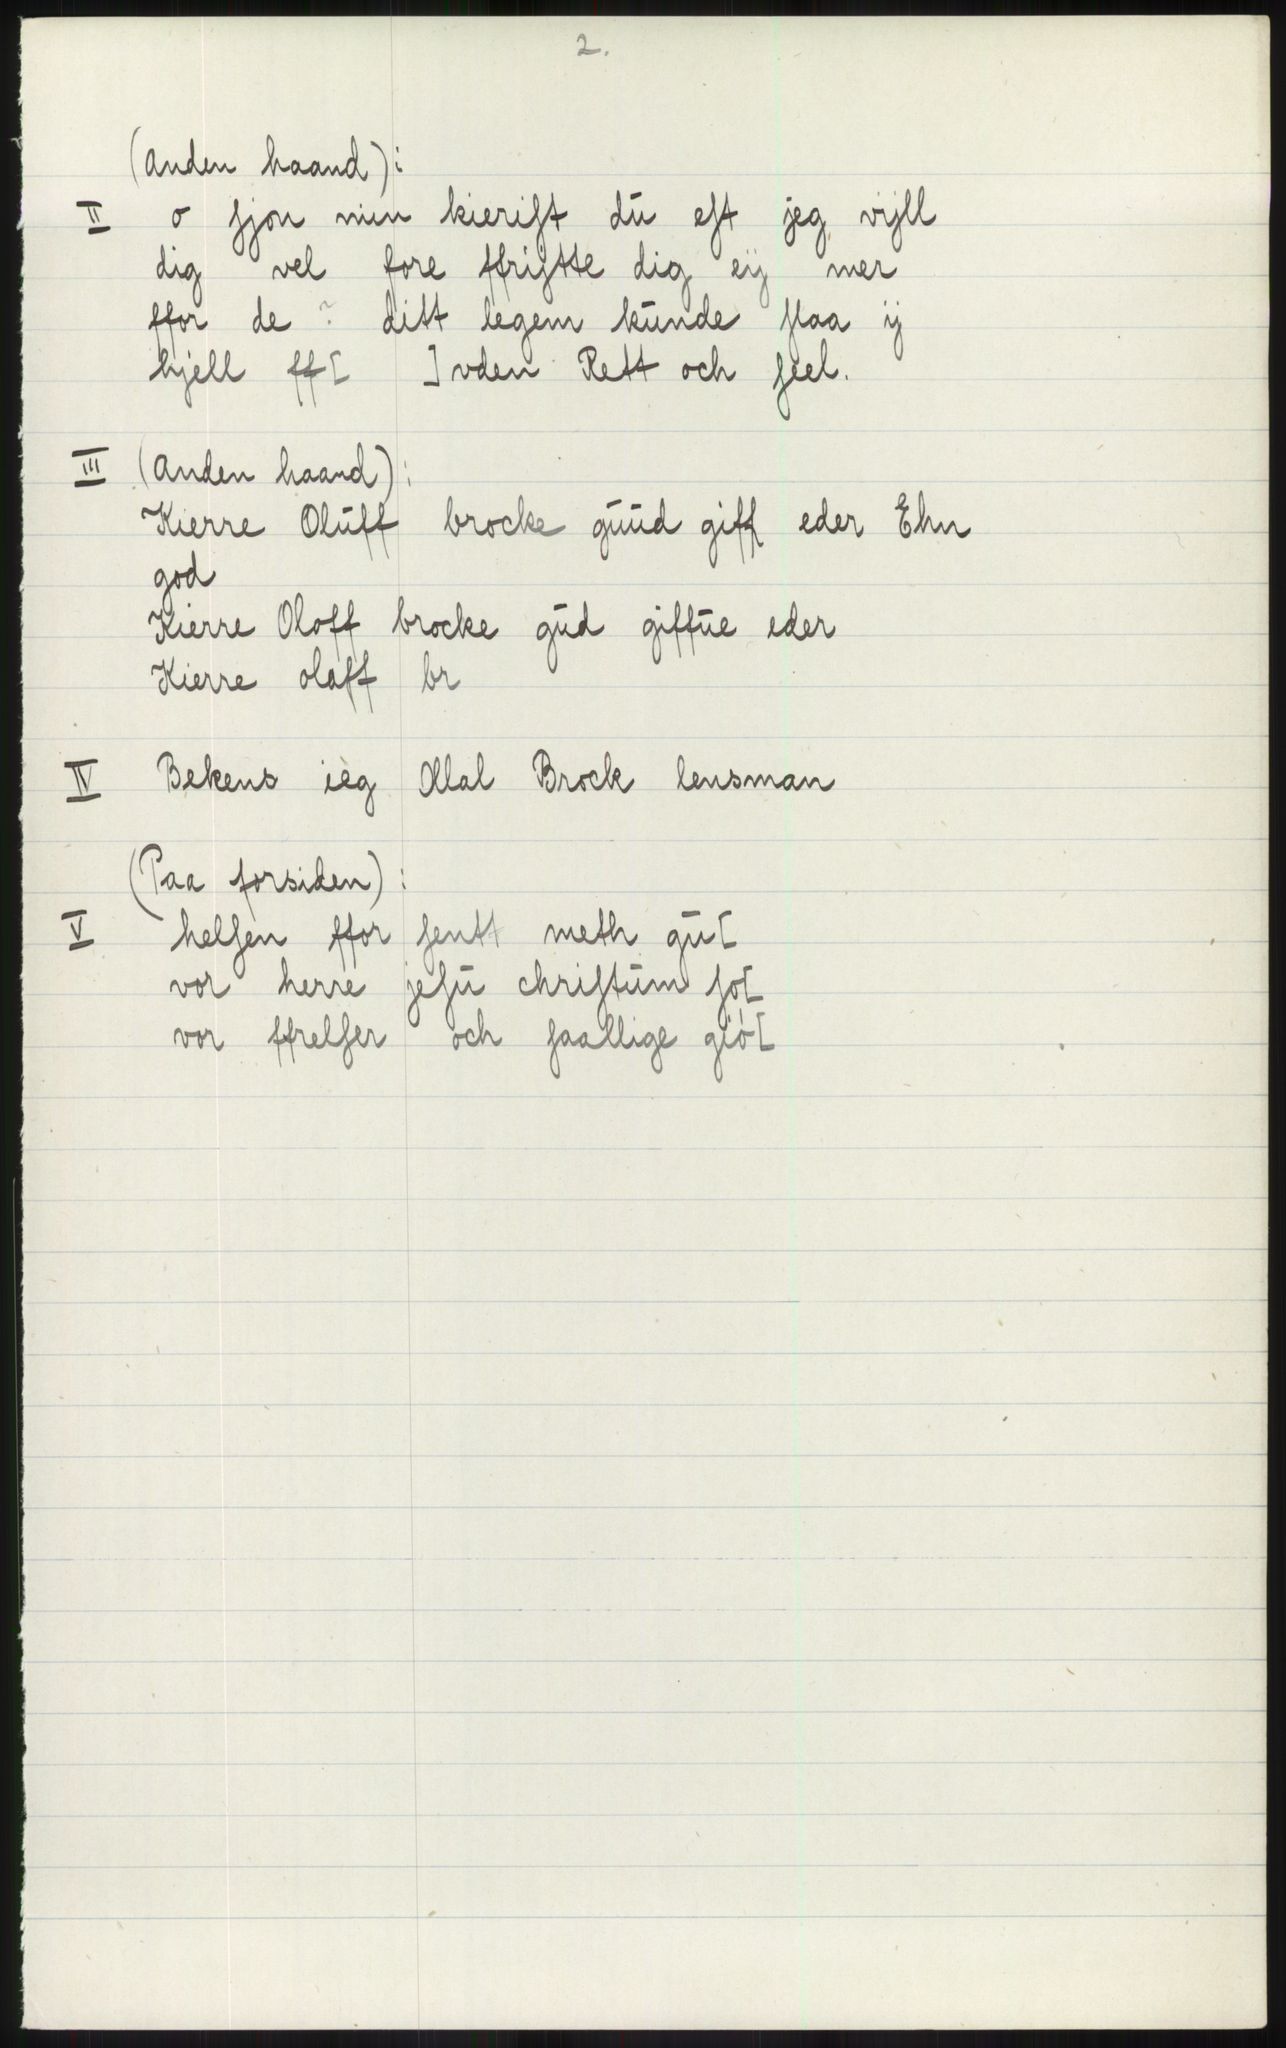 2.
(Anden haand):
II o ſjon min kieriſt dū eſt jeg vijll
dig vel fore ffrijtte dig eÿ mer
ffor de ? ditt legem kūnde ſlaa ÿ
hjell ff[ ] vden Rett och ſeel.
III (Anden haand):
Kierre Olūff brocke gūūd giff eder Ehn
god
Kierre Oloff brocke gūd giffūe eder
Kierre olaff br
IV Bekens ieg Ollal Brock lensman
(Paa forsiden):
V helſen ffor ſentt meth gū[
vor herre jeſū chriſtūm ſo[
vor ffrelſer och ſaallige gió[